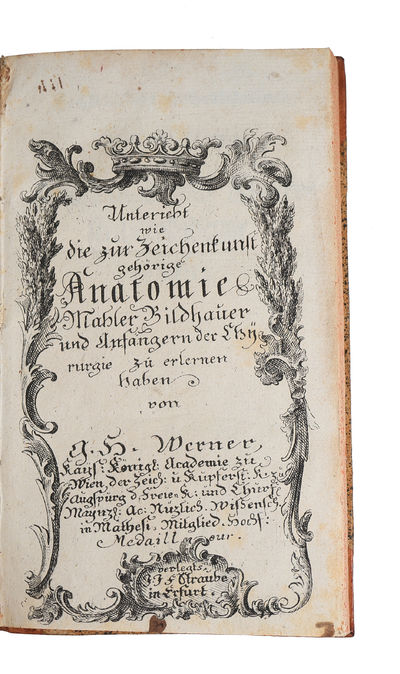 Untericht
wie
die zur Zeichenkunst
gehörige
Anatomie
Mahler Bildhauer
und Anfängern der Chÿ=
rurgie zu erlernen
haben
von
J. H. Werner,
Kays: Königl: Academie zu
Wien, der Zeich: u Kupferst: K: zu
Augspurg d. Freie: K: und Churf:
Maynz: Ac: Nüzlich. Wißensch:
in Mathesi, Mitglied. Hochf:
Medaill our.
verlegts
J. F Straube
in Erfurt.